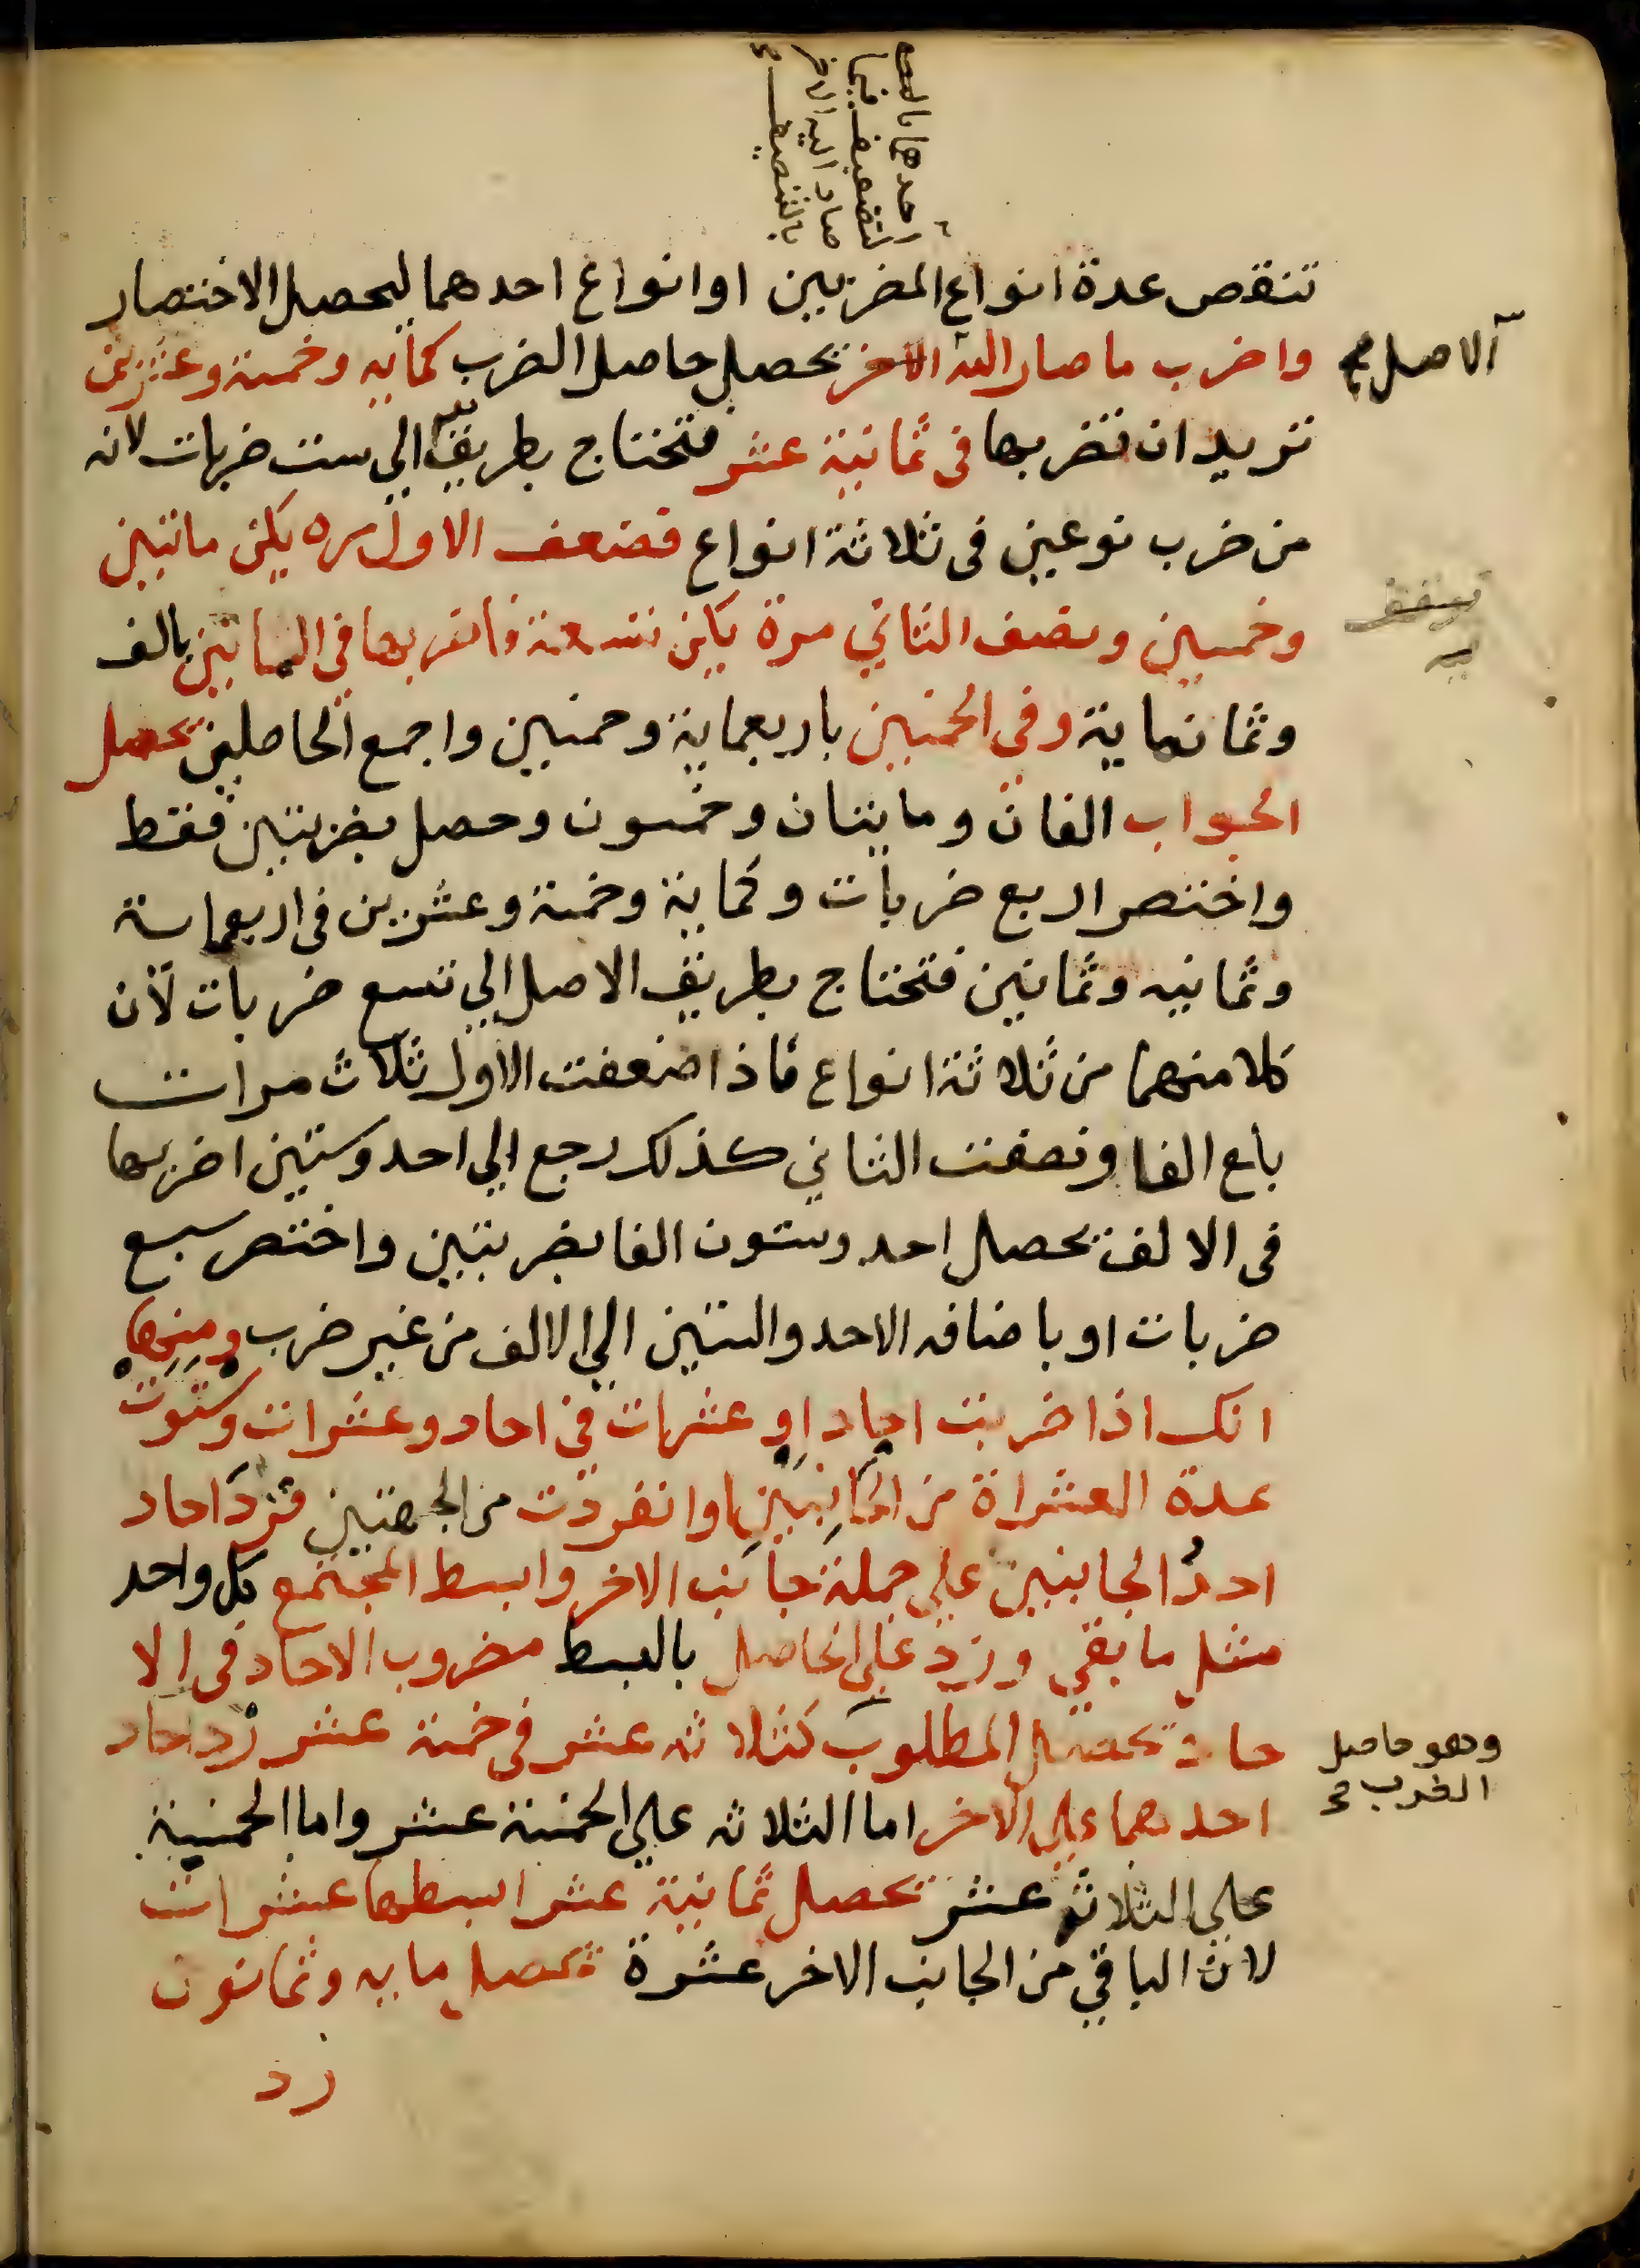 احدهما بالتضعيف
فيما
صار اليه الاخر
بالتنصيف
تنقص عدة انواع المضربين او انواع احدهما ليحصل الاختصار
واضرب ما صار اليه الاخر يحصل حاصل الضرب كماية وخمسة وعشرين
تريد ان تضربها في ثمانية عشر فتحتاج بطريق الي ست ضربات لانه
الاصل
من ضرب نوعين في ثلاثة انواع فضعف الاول مره يكن مائتين
وخمسين ونصف الثاني مرة يكن تسعة فاضربها في المائتين بالف
وثمانماية وفي الخمسين باربعماية وخمسين واجمع الحاصلين يحصل
الجواب الفان ومايتان وخمسون وحصل بضربتين فقط
واختصر اربع ضربات وكماية وخمسة وعشرين في اربعماية
وثمانيه وثمانين فتحتاج بطريق الاصل الي تسع ضربات لان
كلا منهما من ثلاثة انواع فاذا ضعفت الاول ثلاث مرات
بلغ الفا ونصفت الثاني كذلك رجع الي احد وستين اضربها
في الالف يحصل احد وستون الفا بضربتين واختصر سبع
ضربات او باضافه الاحد والستين الي الالف من غير ضرب ومنها
انك اذا ضربت احاد او عشرات في احاد وعشرات وستوت
عدة العشراة من الجانبين او انفردت من الجهتين فزد احاد
احد الجانبين علي جملة جانب الاخر وابسط المجتمع كل واحد
مثل ما بقي وزد علي الحاصل بالبسط مضروب الاحاد في الا
حاد يحصل المطلوب كثلاثه عشر في خمسة عشر زد احاد
وهو حاصل
الضرب
احدهما علي الاخر اما الثلاثه علي الخمسة عشر واما الخمسة
علي الثلاثة عشر يحصل ثمانية عشر ابسطها عشرات
لان الباقي من الجانب الاخر عشرة تحصل مايه وثمانون
زد